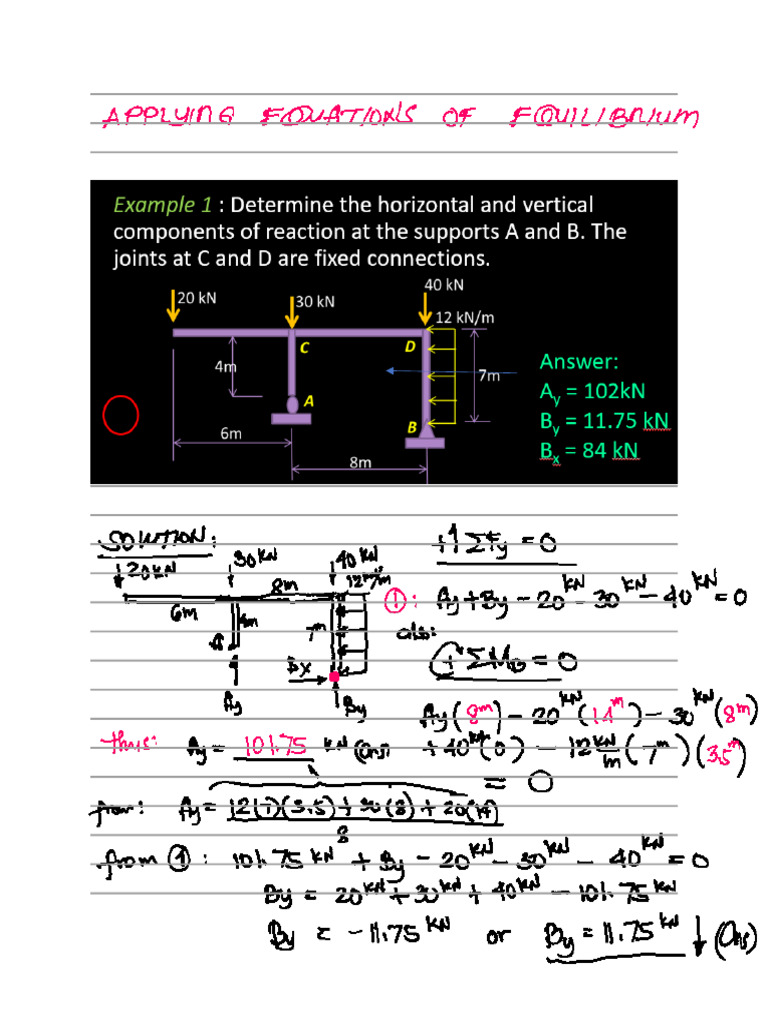 APPLYING EQUATIONS OF EQUILIBRIUM
Example 1 : Determine the horizontal and vertical
components of reaction at the supports A and B. The
joints at C and D are fixed connections.
40 kN
20 kN
30 kN
12 kN/m
C
D
4m
7m
A
B
6m
8m
Answer:
Ay = 102kN
By = 11.75 kN
Bx = 84 kN
SOLUTION:
20 kN
30 kN
40 kN
12
8m
6m
4m
7m
Bx
Ay
By
+↑ΣFy = 0
①: Ay + By - 20 kN - 30 kN - 40 kN = 0
also:
+ ΣMB = 0
Ay (8m) - 20 kN (14m) - 30 kN (8m)
+ 40 kN (0) - 12 kN/m (7m) (3.5m)
= 0
thus: Ay = 101.75 kN (Ans)
from: Ay = 12(7)(3.5) + 30(8) + 20(14)
8
from ①: 101.75 kN + By - 20 kN - 30 kN - 40 kN = 0
By = 20 kN + 30 kN + 40 kN - 101.75 kN
By = -11.75 kN or By = 11.75 kN ↓ (Ans)